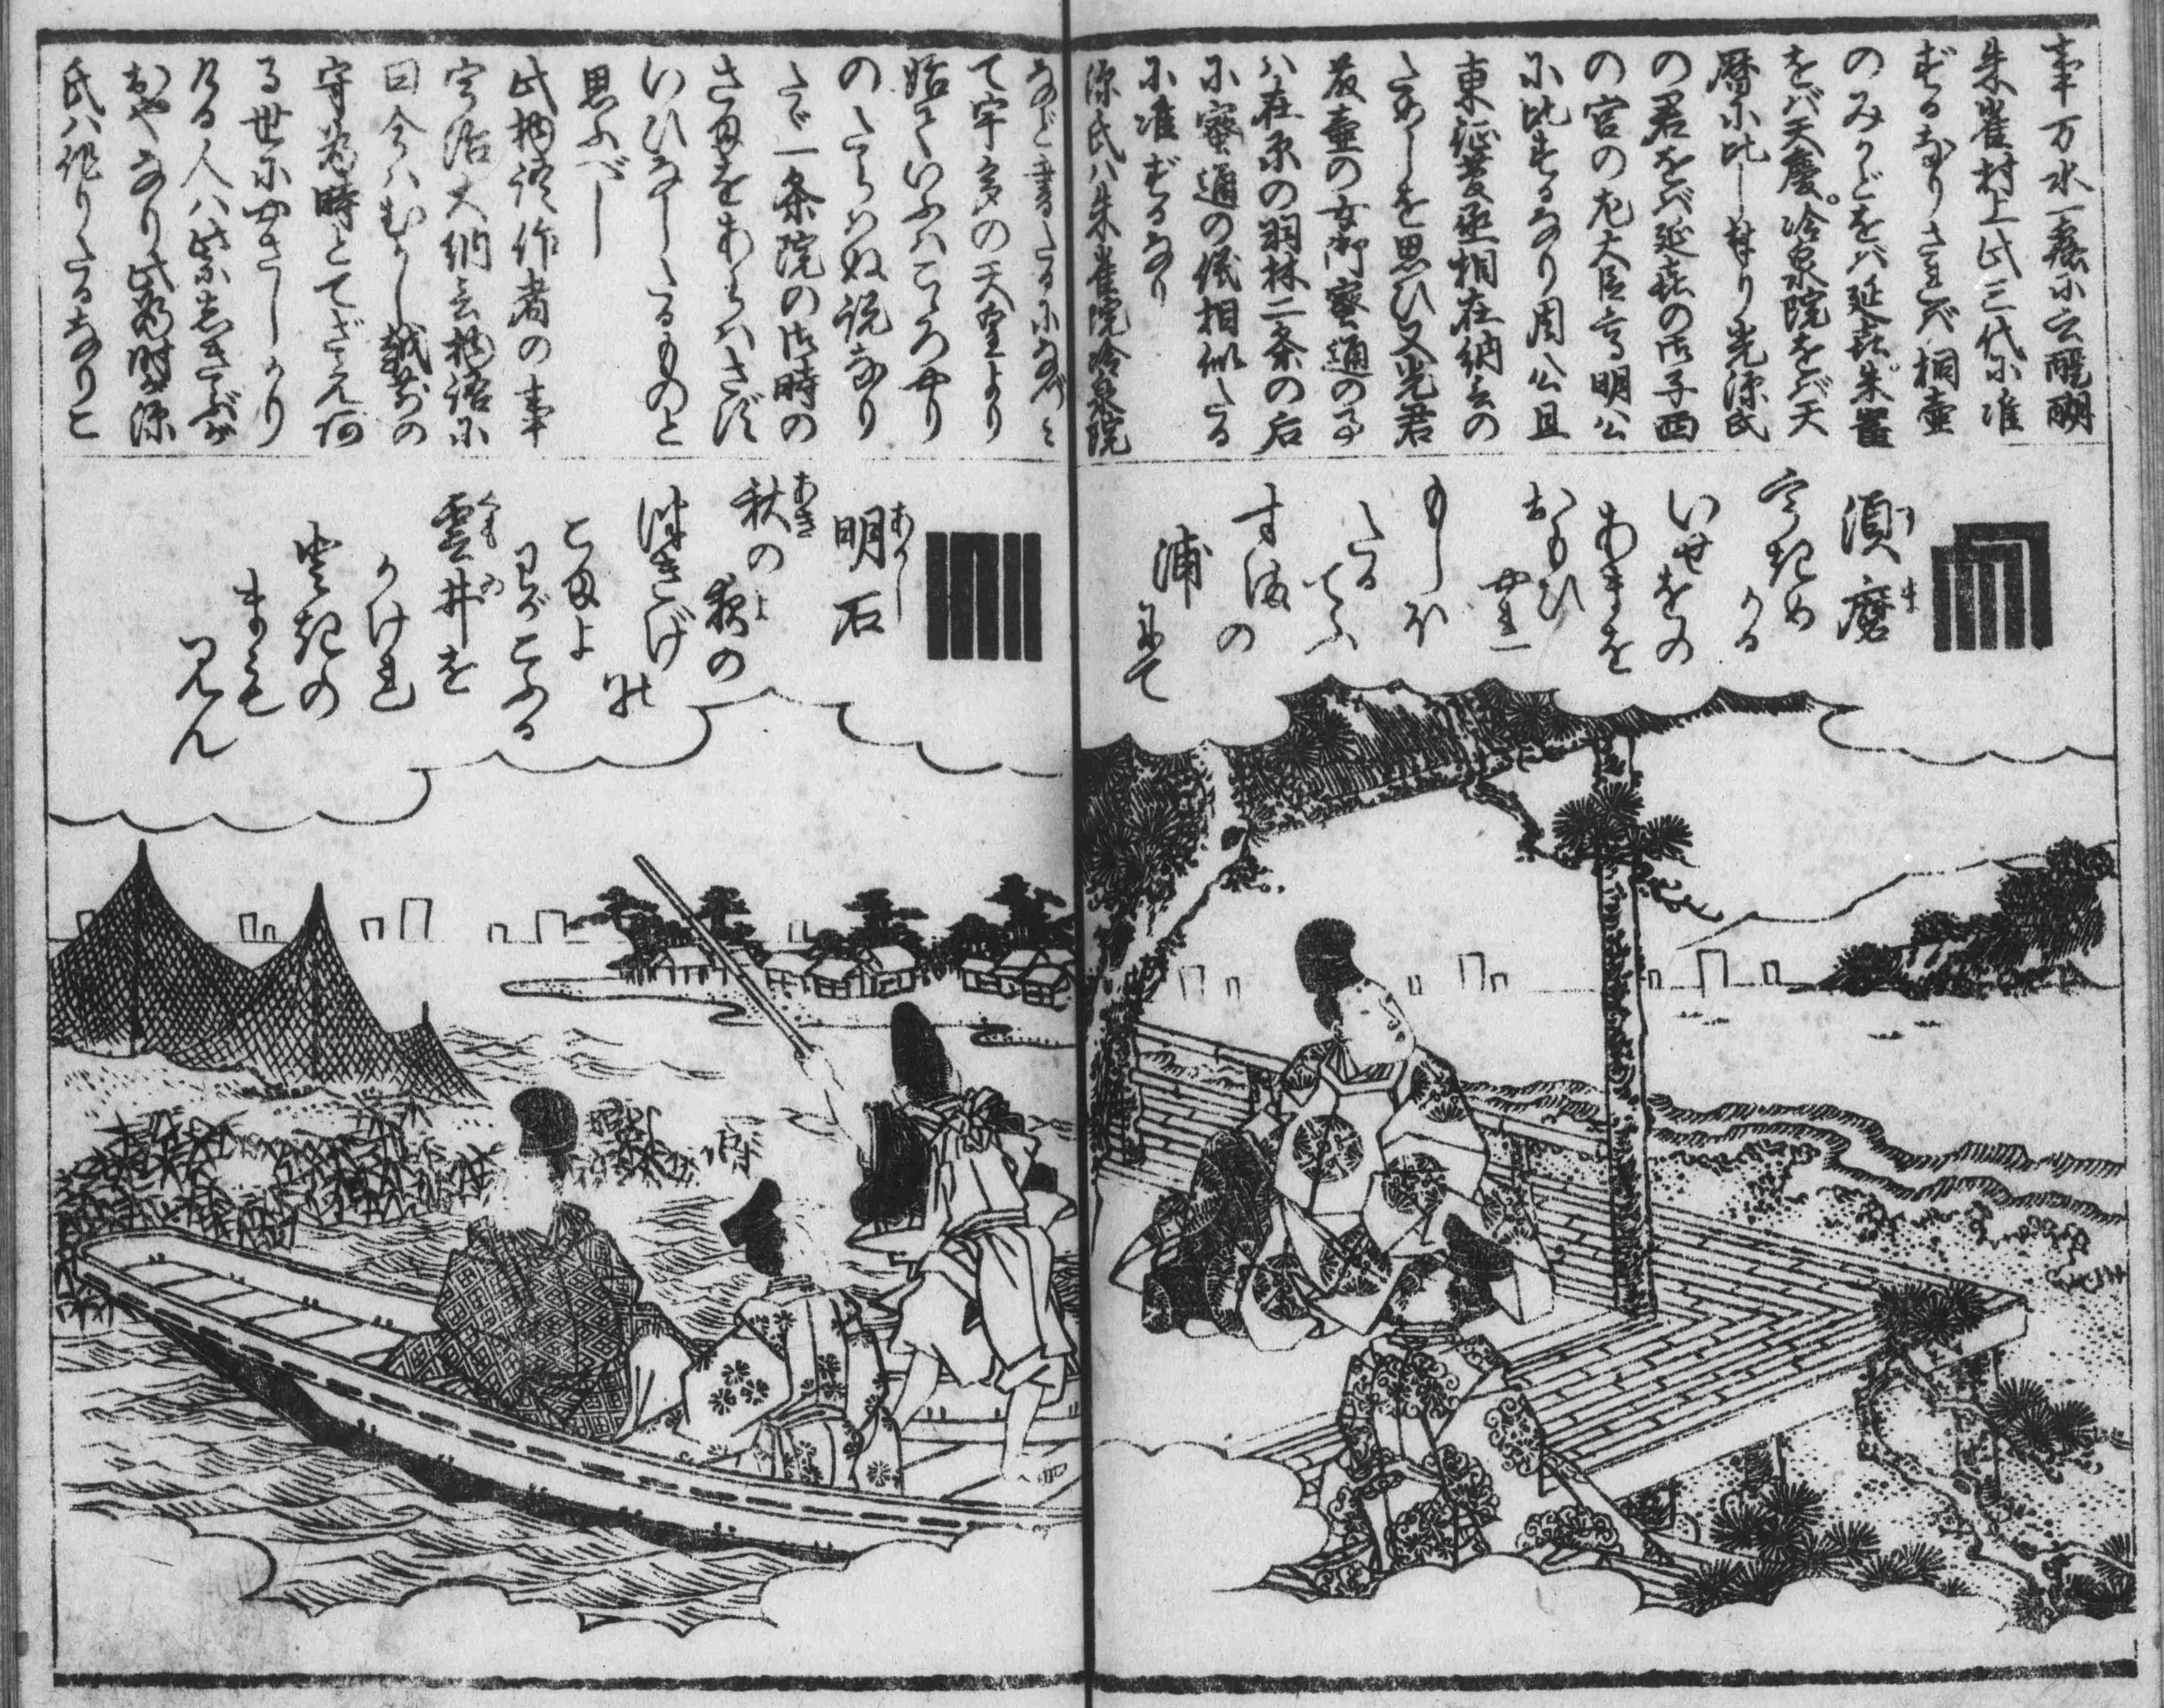 事万水一露に云醍醐
朱雀村上此三代に准
ずるなりされバ桐壷
のみかどをバ延喜朱雀
をバ天慶。冷泉院をバ天
暦に比し奉り光源氏
の君をバ延喜の御子西
の宮の左大臣高明公
に比するなり周公旦
東征菅丞相在納言の
ためしを思ひ又光君
藤壷の女御密通の事
ハ在原の羽林二条の后
に密通の儀相似たる
に准ずるなり
源氏ハ朱雀院冷泉院
など書たるになずらへ
て宇多の天皇より
始ていふハこゝろやり
のたらハぬ説なり
たゞ一条院の御時の
さまをあらハさず
いひなしたるものと
思ふべし
此物語作者の事
宇治大納言物語に
曰今ハむかし越前の
守為時とてざえ有
る世にやさしかり
ける人ハ紫しきぶが
おやなり此為時源
氏ハ作りたるなりと
須磨
すま
うきめ
かる
いせをの
あまを
おもひ
やれ
もしほ
たる
てふ
すまの
浦
にて
明石
あかし
秋の
あき
夜の
よ
月げ
の
こまよ
わがこふる
雲井を
くもゐ
かけれ
時のまも
見ん